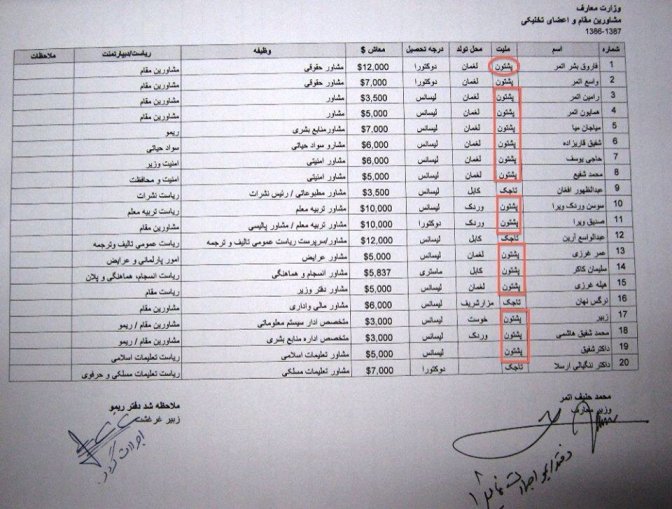 وزارت معارف
مشاورین مقام و اعضای تخنیکی
1386-1387
شماره اسم ملیت محل تولد درجه تحصیل معاش $ وظیفه ریاست/دیپارتمنت ملاحظات
1 فاروق بشر اتمر پشتون لغمان دوکتورا $12,000 مشاور حقوقی مشاورین مقام
2 واسع اتمر پشتون لغمان دوکتورا $7,000 مشاور حقوقی مشاورین مقام
3 رامین اتمر پشتون لغمان لیسانس $3,500 مشاور مشاورین مقام
4 همایون اتمر پشتون لغمان لیسانس $5,000 مشاور مشاورین مقام
5 میاجان میا پشتون لغمان لیسانس $7,000 مشاورمنابع بشری ریمو
6 شفیق قاریزاده پشتون لغمان لیسانس $6,000 مشارو سواد حیاتی سواد حیاتی
7 حاجی یوسف پشتون لغمان لیسانس $6,000 مشاور امنیتی امنیت وزیر
8 محمد شفیع پشتون لغمان لیسانس $5,000 مشاور امنیتی امنیت و محافظت
9 عبدالظهور افغان تاجک کابل لیسانس $3,500 مشاور مطبوعاتی / رئیس نشرات ریاست نشرات
10 سوسن وردک ویرا پشتون وردک لیسانس $10,000 مشاور تربیه معلم ریاست تربیه معلم
11 صدیق ویرا پشتون وردک دوکتورا $10,000 مشاور تربیه معلم / مشاور پالیسی مشاورین مقام
12 عبدالواسع آرین تاجک کابل لیسانس $12,000 مشاور/سرپرست ریاست عمومی تالیف و ترجمه ریاست عمومی تالیف وترجمه
13 عمر غرزی پشتون لغمان لیسانس $5,000 مشاور عرایض امور پارلمانی و عرایض
14 سلیمان کاکر پشتون کابل ماستری $5,837 مشاور انسجام و هماهنگی ریاست انسجام، هماهنگی و پلان
15 هیله غرزی پشتون لغمان لیسانس $5,000 مشاور دفتر وزیر ریاست مقام
16 نرگس نهان تاجک مزارشریف لیسانس $6,000 مشاور مالی واداری مشاورین مقام
17 زبیر پشتون خوست لیسانس $3,000 متخصص ادار سیستم معلوماتی مشاورین مقام / ریمو
18 محمد شفیق هاشمی پشتون وردک لیسانس $3,000 متخصص اداره منابع بشری مشاورین مقام / ریمو
19 داکتر شفیق پشتون لیسانس $5,000 مشاور تعلیمات اسلامی ریاست تعلیمات اسلامی
20 داکتر ننگیالی ارسلا تاجک دوکتورا $7,000 مشاور تعلیمات مسلکی ریاست تعلیمات مسلکی و حرفوی
محمد حنیف اتمر
وزیر معارف
ملاحظه شد دفتر ریمو
زبیر غرغشت
اجراات گردد